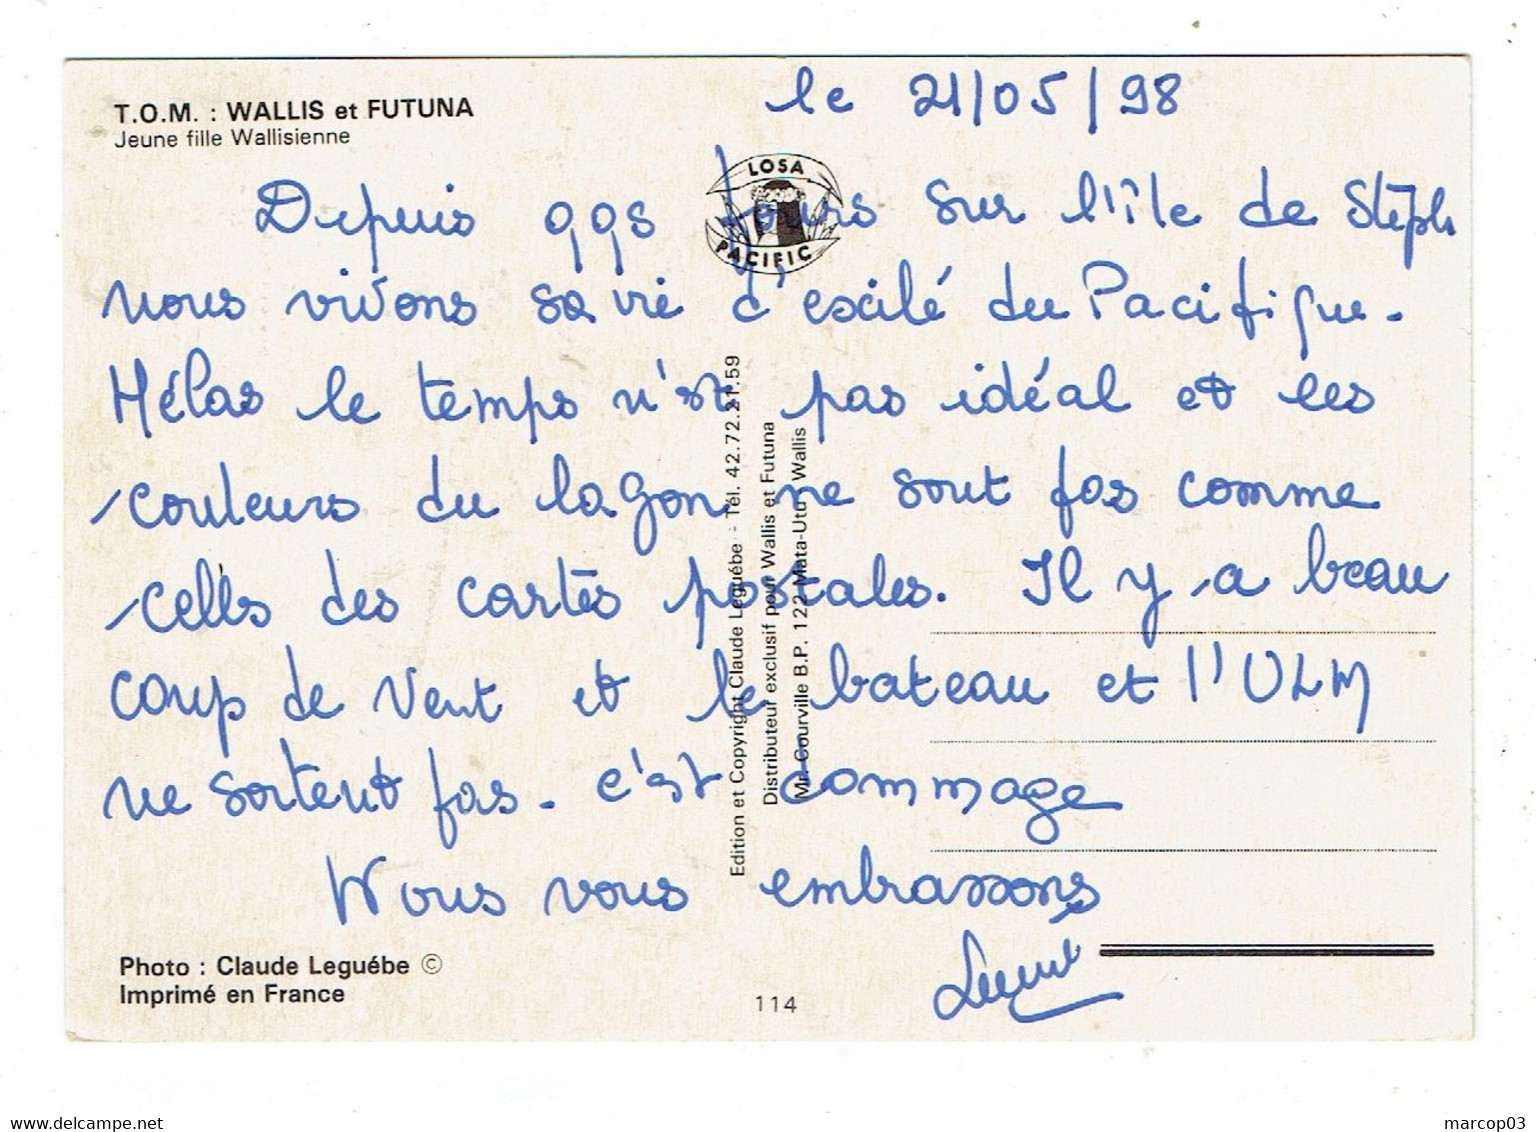 T.O.M. : WALLIS et FUTUNA
Jeune fille Wallisienne
le 21/05/98
LOSA
PACIFIC
Depuis qqs jours sur l'île de Stéph
nous vivons sa vie d'exilé du Pacifique.
Hélas le temps n'est pas idéal et les
couleurs du lagon ne sont pas comme
celles des cartes postales. Il y a beau
coup de vent et le bateau et l'ULM
ne sortent pas. C'est dommage
Nous vous embrassons
Edition et Copyright Claude Leguébe - Tél. 42.72.21.59
Distributeur exclusif pour Wallis et Futuna
Mr. Courville B.P. 122 Mata-Utu - Wallis
Photo : Claude Leguébe ©
Imprimé en France
114
delcampe.net
marcop03